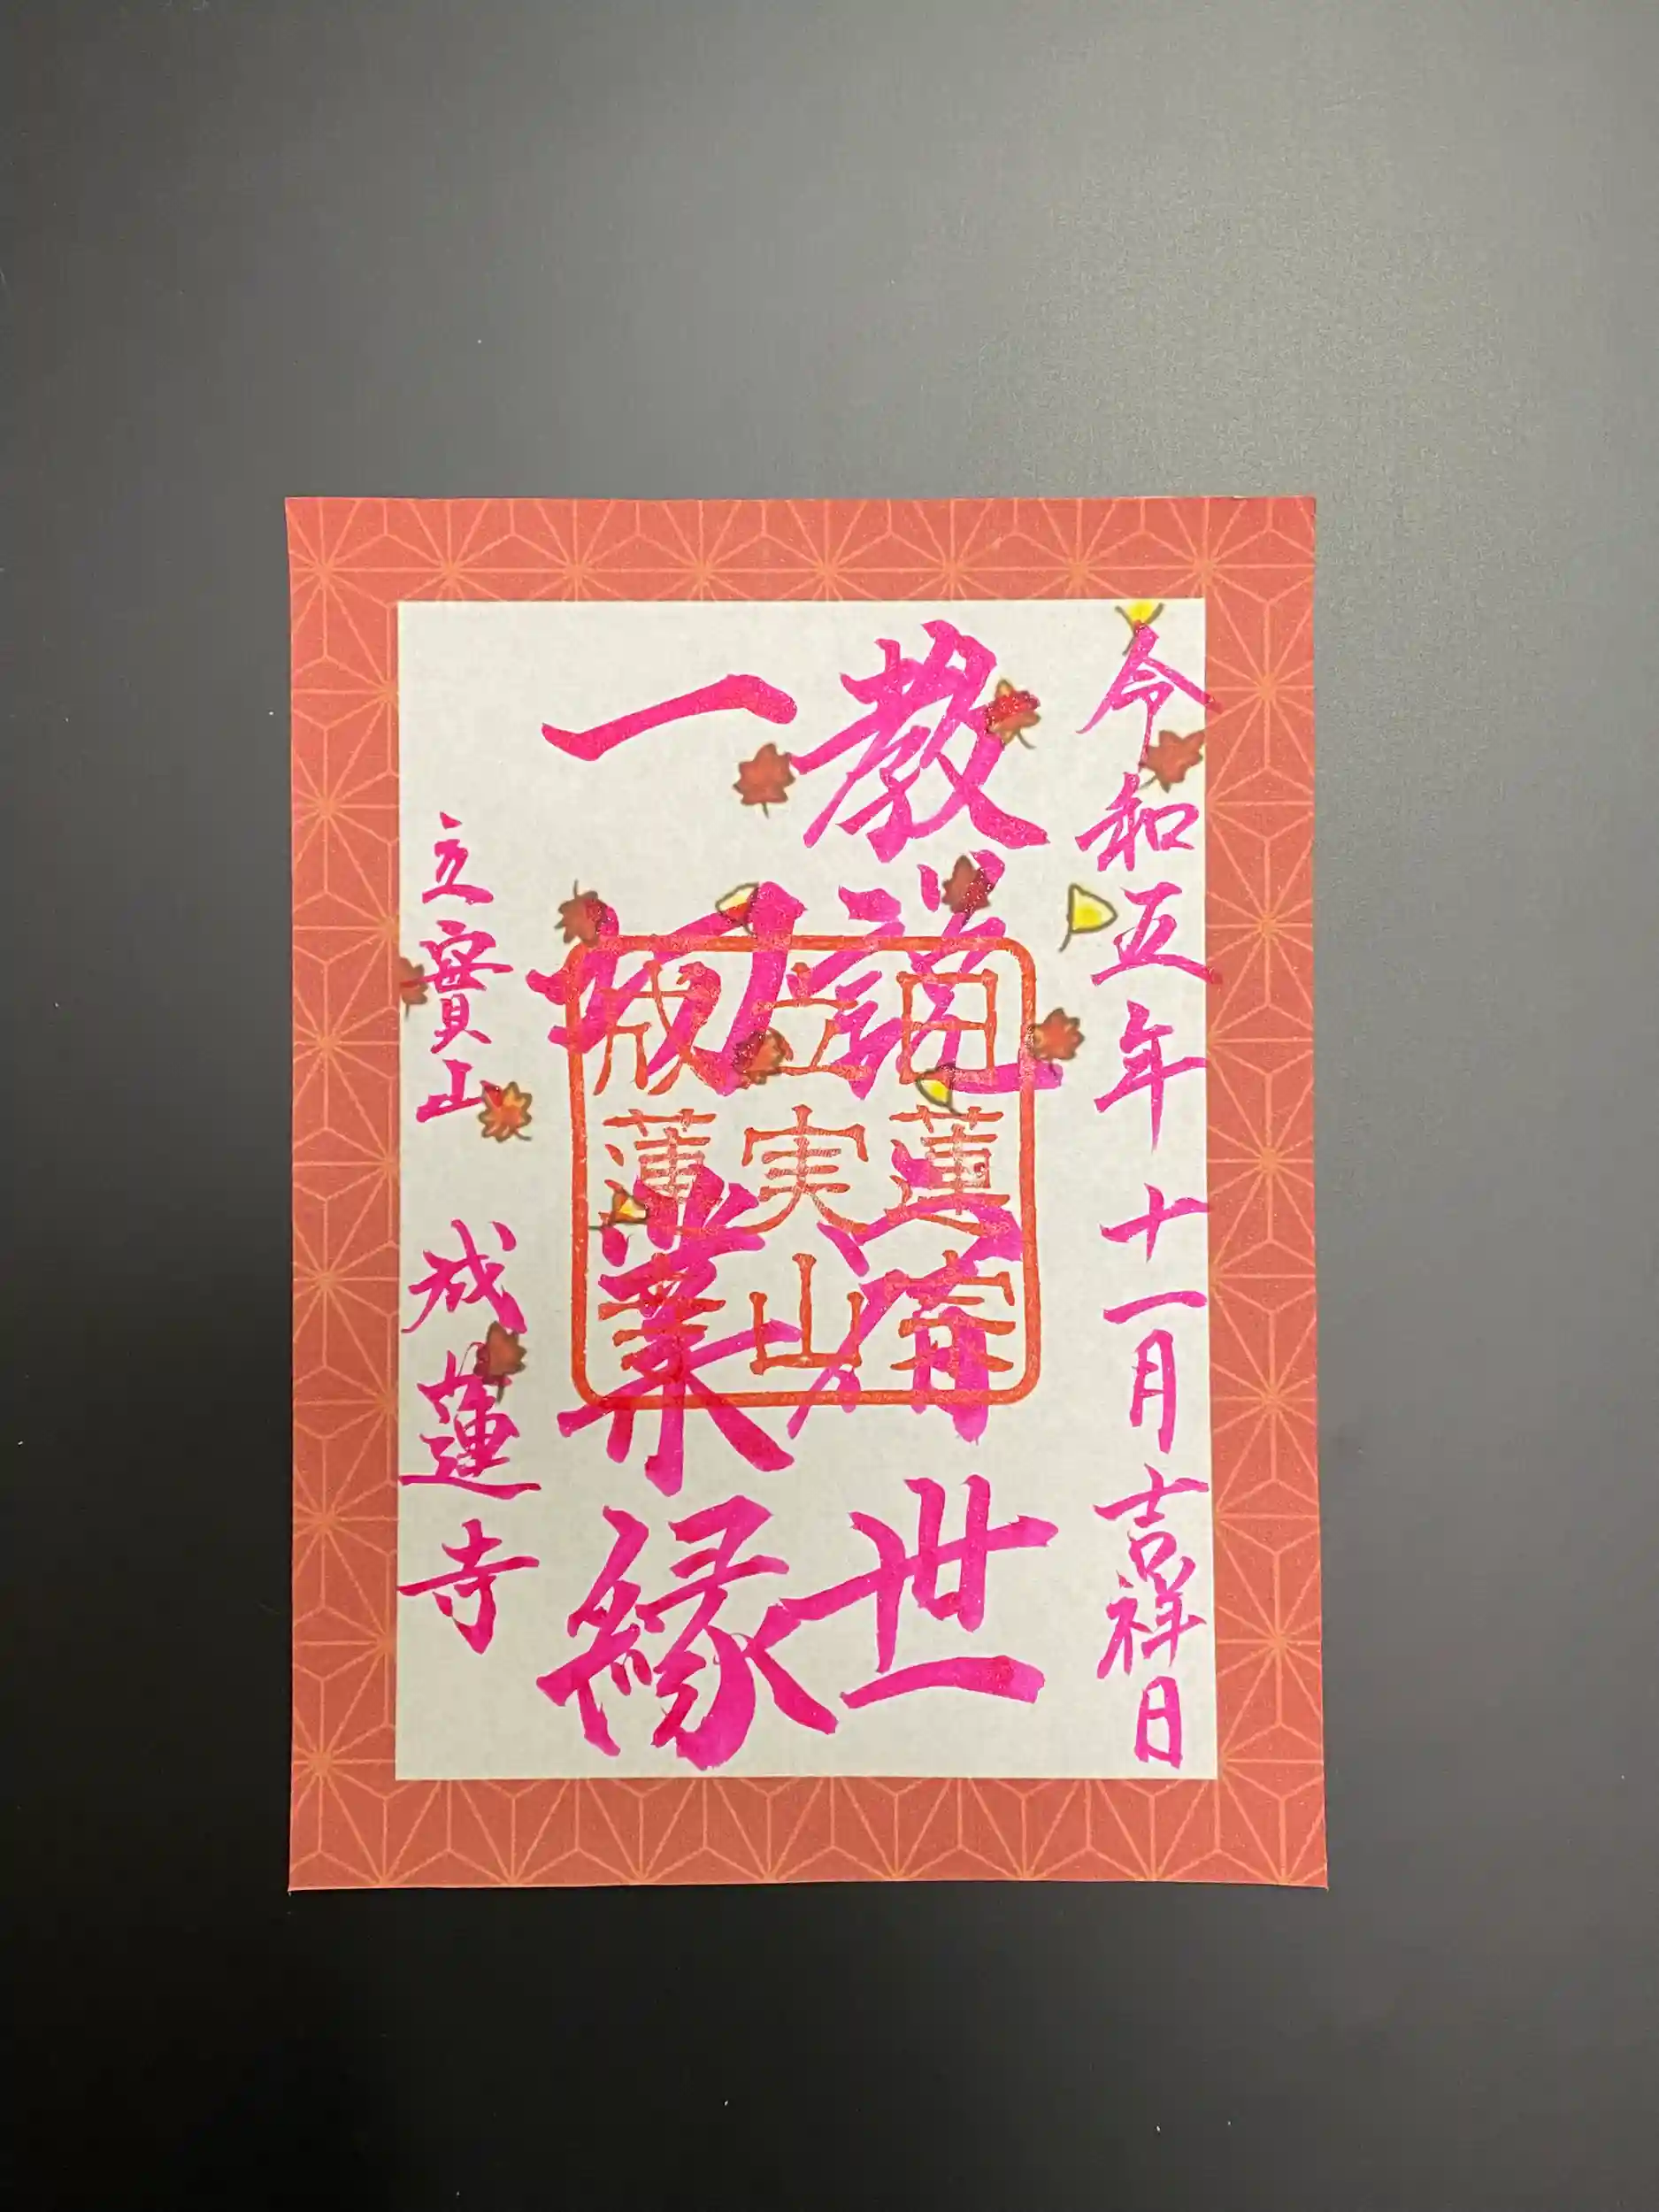 令和五年 十一月吉祥日
教説宿世
一切業縁
立實山 成蓮寺
日蓮宗
立実山
成蓮寺